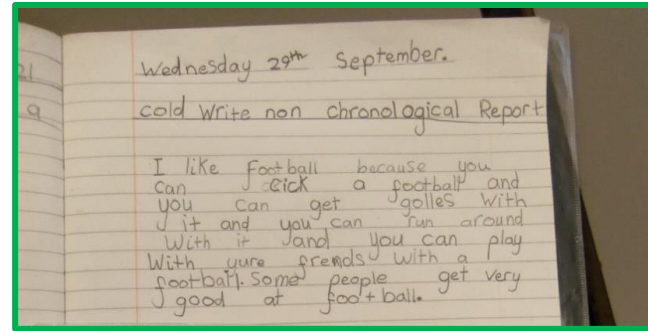 21
9
Wednesday 29th September.
cold Write non chronological Report
I like Football because you
can cick a football and
you can get golles with
it and you can run around
With it and you can play
With yure frends with a
football. Some people get very
good at foot ball.